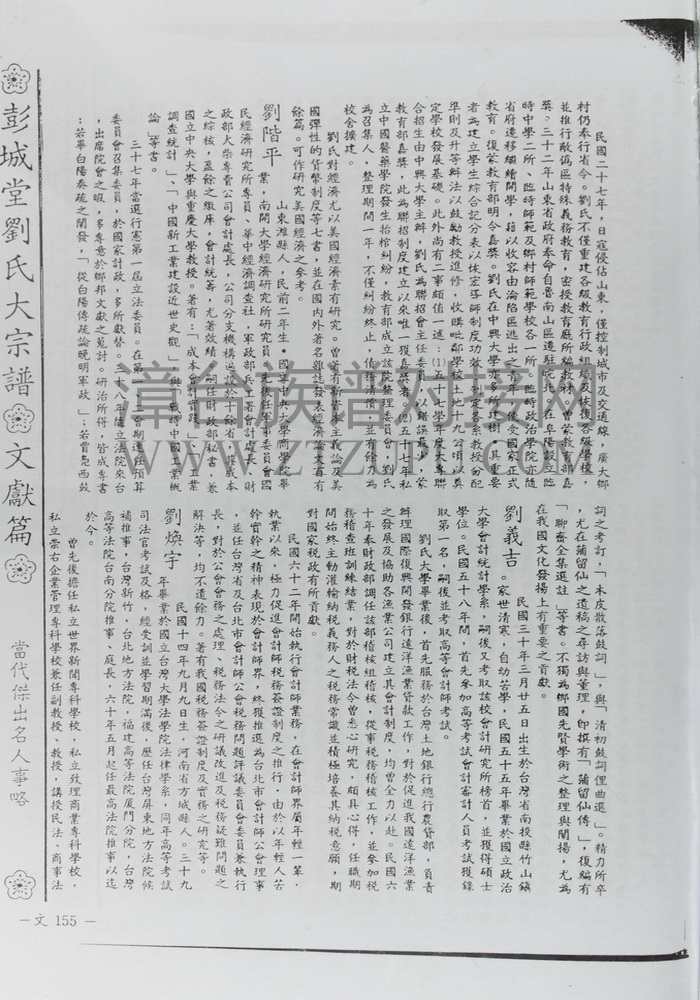 彭城堂劉氏大宗譜 文獻篇 當代傑出名人事略
民國二十七年，日寇侵佔山東，僅控制城市及交通線，廣大鄉
村仍奉行省令。劉氏不僅重建各級教育行政組織及恢復各級學校，
並推行敵偽區特殊義務教育，密授教育廳所編教材。曾蒙教育部嘉
獎。三十二年山東省政府奉命自魯南山區遷駐皖北，在阜陽設立臨
時中學二所、臨時師範及鄉村師範學校各一所、臨時政治學院
省府遷移繼續開學，藉以收容由淪陷區逃出之青
教育。復蒙教育部明令嘉獎。劉氏在中興大學
者為建立學生綜合記分表以恢宏導師制度功效
準則及升等辦法以鼓勵教授進修，收購
定學校發展基礎。此外尚有二事頗值一述：
合招生由中興大學主辦，劉氏為聯招會主任委員
教育部嘉獎，此為聯招制度建立以來唯一獲嘉獎者
立中國醫藥學院發生拾棺糾紛，教育部成立該院整理委員會，劉氏
為召集人，整理期間一年，不僅糾紛終止，債務清償，並有餘力為
校舍擴建。
劉氏對經濟尤以美國經濟素有研究。曾著有新資本主義論及美
國彈性的貨幣制度等七書，並在國內外著名雜誌發表經濟論文百有
餘篇。可作研究美國經濟之參考。
劉階平 山東濰縣人，民前二年生。國立中央大學商學院畢
業，南開大學經濟研究所研究員
民經濟研究所專員、華中經濟調查社，軍政部兵工署會計處長，財
政部火柴專賣公司會計處長，公司分支機構
之綜核，盈餘之繳庫，會計統籌，尤著效績
國立中央大學與重慶大學教授。著有：「成本會計
調查統計」、「中國新工業建設近世史觀」，與「戰時中國工業
論」等書。
三十七年當選行憲第一屆立法委員。在第
委員會召集委員，於國家計政，多所獻替。三十八年隨立法院來台
，出席院會之暇，多專意於鄉邦文獻之蒐討。研治所得，皆成專書
：若畢白陽奏疏之闡發，「從白陽傳疏論晚明軍政」；若賈鳧西鼓
詞之考訂，「木皮散落鼓詞」，與「清初鼓詞俚曲選」。精力所卒
，尤在蒲留仙之遺稿之尋訪與董理，即撰有「蒲留仙傳」，後編有
「聊齋全集選註」等書。不獨為鄉國先賢學術之整理與闡揚，尤為
在我國文化發揚上有重要之貢獻。
劉義吉 民國三十年三月廿五日出生於台灣省南投縣竹山鎮
。家世清寒，自幼苦學，民國五十五年畢業於國立政治
大學會計統計學系，嗣後又考取該校會計研究所榜首，並獲得碩士
學位。民國五十八年間，首先參加高等考試會計審計人員考試獲錄
取第一名，嗣後並考取高等會計師考試。
劉氏大學畢業後，首先服務於台灣土地銀行總行農貸部，負責
辦理國際復興開發銀行遠洋漁業貸款工作，對於促進我國遠洋漁業
之發展及協助各漁業公司建立其會計制度，均曾全力以赴。民國六
十年奉財政部調任該部稽核組稽核，從事稅務稽核工作，並參加稅
務稽查班訓練結業，對於財稅法令曾悉心研究，頗具心得，任職期
間始終主動灌輸納稅義務人之稅務常識並積極培養其納稅意願，期
對國家稅政有所貢獻。
民國六十二年開始執行會計師業務，在會計師界屬年輕一輩，
執業以來，極力促進會計師稅務簽證制度之推行，由於以年輕人苦
幹實幹之精神表現於會計師界，終獲推選為台北市會計師公會理事
，並任台灣省及台北市會計師公會稅務問題評議委員會委員兼執行
長，對於公會會務之處理、稅務法令之研議改進及稅務疑難問題之
解決等，均不遺餘力。著有我國稅務簽證制度及實務之研究等。
劉煥宇 民國十四年九月九日生，河南省方城縣人。三十九
年畢業於國立台灣大學法學院法律學系，同年高等考試
司法官考試及格，經受訓並學習期滿後，歷任台灣屏東地方法院候
補推事，台灣新竹，台北地方法院，福建高等法院廈門分院，台灣
高等法院台南分院推事、庭長，六十年五月起任最高法院推事以迄
於今。
曾先後擔任私立世界新聞專科學校，私立致理商業專科學校，
私立崇右企業管理專科學校兼任副教授、教授，講授民法、商事法
—文 155—
漳台族譜對接网
WWW.ZTZUPU.COM